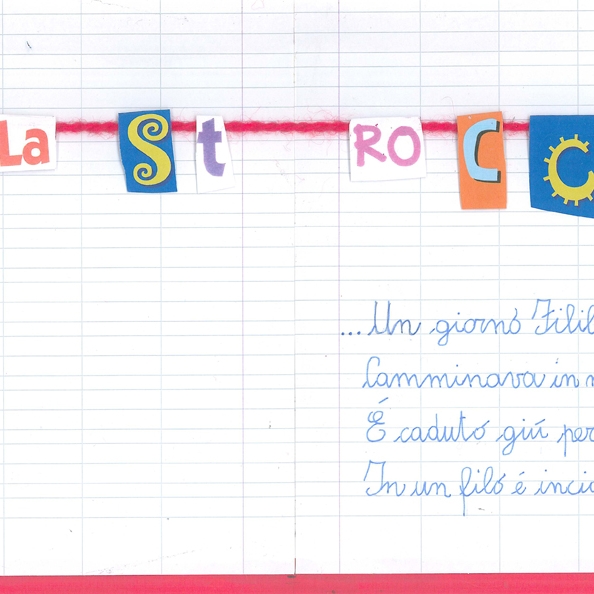 La St RO C C
...Un giorno Filil
Camminava in
É caduto giú per
In un filo é inci